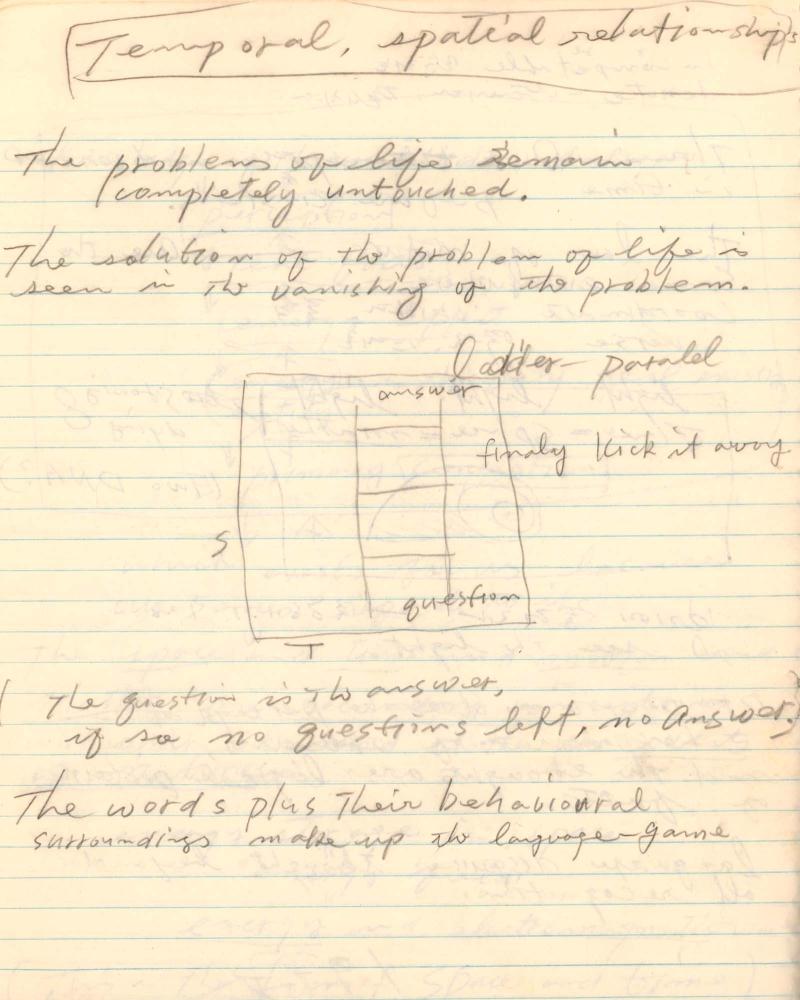 Temporal, spatial relationships
The problems of life remain
completely untouched.
The solution of the problem of life is
seen in the vanishing of the problem.
ladder - paralel
answer
finaly Kick it away
S
question
T
( The question is the answer,
if so no questions left, no Answer.)
The words plus Their behavioural
surroundings make up the language-game